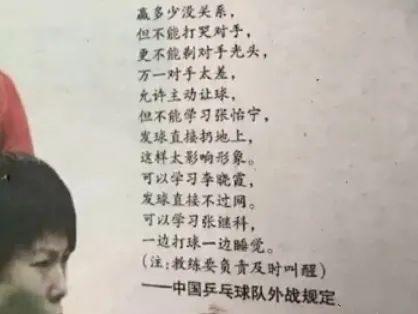 赢多少没关系，
但不能打哭对手，
更不能剃对手光头，
万一对手太差，
允许主动让球，
但不能学习张怡宁，
发球直接扔地上，
这样太影响形象。
可以学习李晓霞，
发球直接不过网。
可以学习张继科，
一边打球一边睡觉。
(注:教练要负责及时叫醒)
——中国乒乓球队外战规定